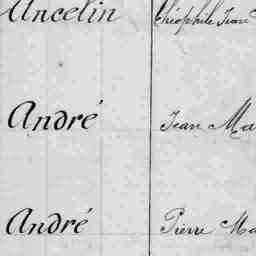 Ancelin Théophile Jean
André Jean Ma
André Pierre Ma